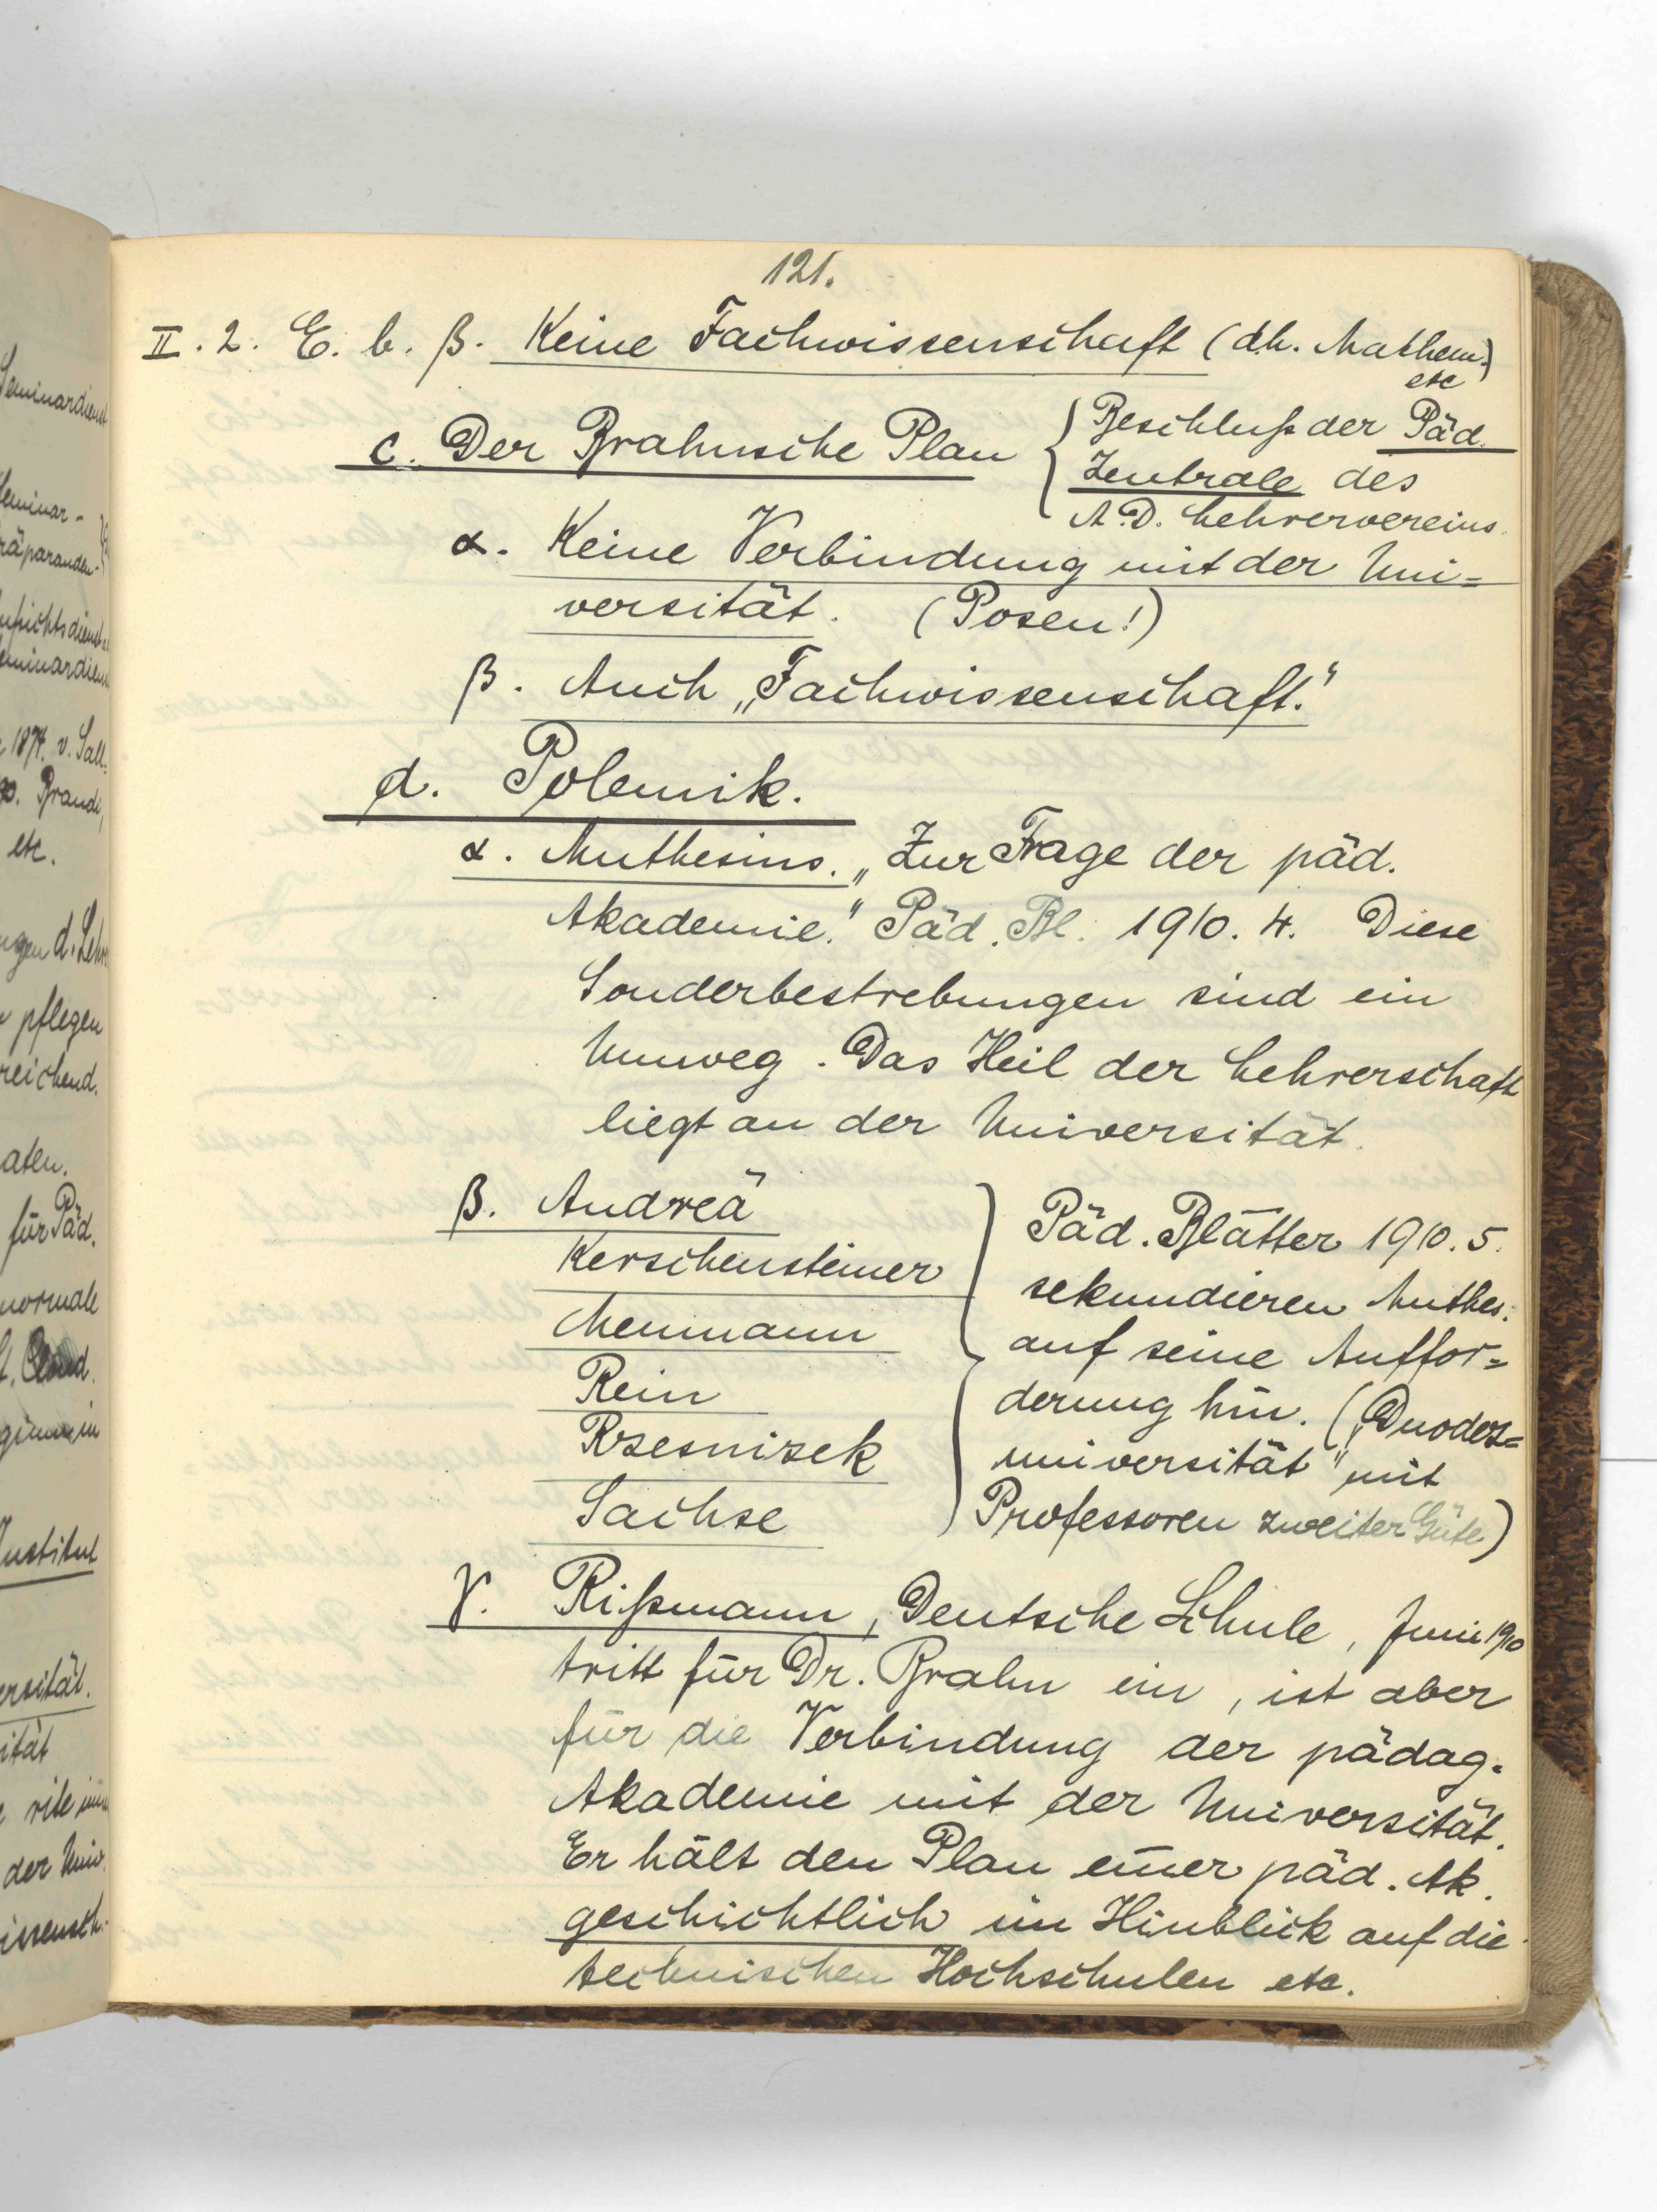 121.
II. 2. E. b. β. Keine Fachwissenschaft (d.h. Mathem.)
etc
c. Der Brahnsche Plan
Beschluß der Päd.
Zentrale des
A.D. Lehrervereins.
α. Keine Verbindung mit der Uni=
versität. (Posen!)
β. Auch „Fachwissenschaft."
d. Polemik.
α. Muthesius. „Zur Frage der päd.
Akademie." Päd. Bl. 1910. 4. Diese
Sonderbestrebungen sind ein
Umweg. Das Heil der Lehrerschaft
liegt an der Universität.
β. Andreä
Kerschensteiner
Meumann
Rein
Rzesnizek
Sachse
Päd. Blätter 1910. 5.
sekundieren Muthes.
auf seine Auffor=
derung hin. („Duodez=
universität" mit
Professoren zweiter Güte)
γ. Rißmann, Deutsche Schule, Juni 1910
tritt für Dr. Brahn ein, ist aber
für die Verbindung der pädag.
Akademie mit der Universität.
Er hält den Plan einer päd. Ak.
geschichtlich im Hinblick auf die
technischen Hochschulen etc.
Seminardienst
Seminar-
räparanden-
eminardien
1874. v. Sall=
Brandi,
etc.
gen d. Lehr
pflegen
reichend.
aten.
für Päd.
normale
Institut
ersität.
ität
der Univ.